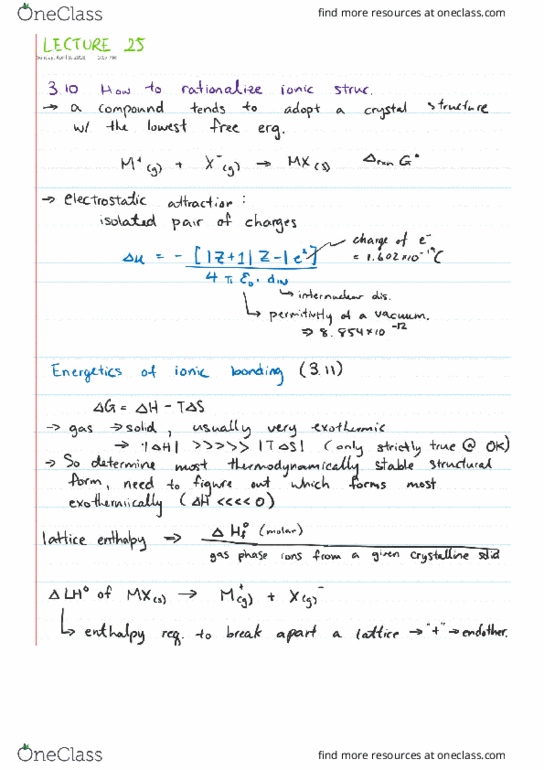 OneClass
find more resources at oneclass.com
LECTURE 25
3.10 How to rationalize ionic struc.
→ a compound tends to adopt a crystal structure
w/ the lowest free erg.
M⁺(g) + X⁻(g) → MX(s) Δrxn G°
→ electrostatic attraction :
isolated pair of charges
Δu = - [|Z+1| Z-| e²] / 4 π ε₀ · d
charge of e⁻
= 1.602×10⁻¹⁹C
↳ internuclear dis.
↳ permitivity of a vacuum.
⇒ 8.854×10⁻¹²
Energetics of ionic bonding (3.11)
ΔG = ΔH - TΔS
→ gas → solid , usually very exothermic
→ |ΔH| >>>>> |TΔS| (only strictly true @ 0K)
→ So determine most thermodynamically stable structural
form, need to figure out which forms most
exothermically (ΔH <<<< 0)
lattice enthalpy → Δ H°f (molar)
gas phase ions from a given crystalline solid
ΔLH° of MX(s) → M⁺(g) + X(g)⁻
↳ enthalpy req. to break apart a lattice → "+" → endother.
OneClass
find more resources at oneclass.com